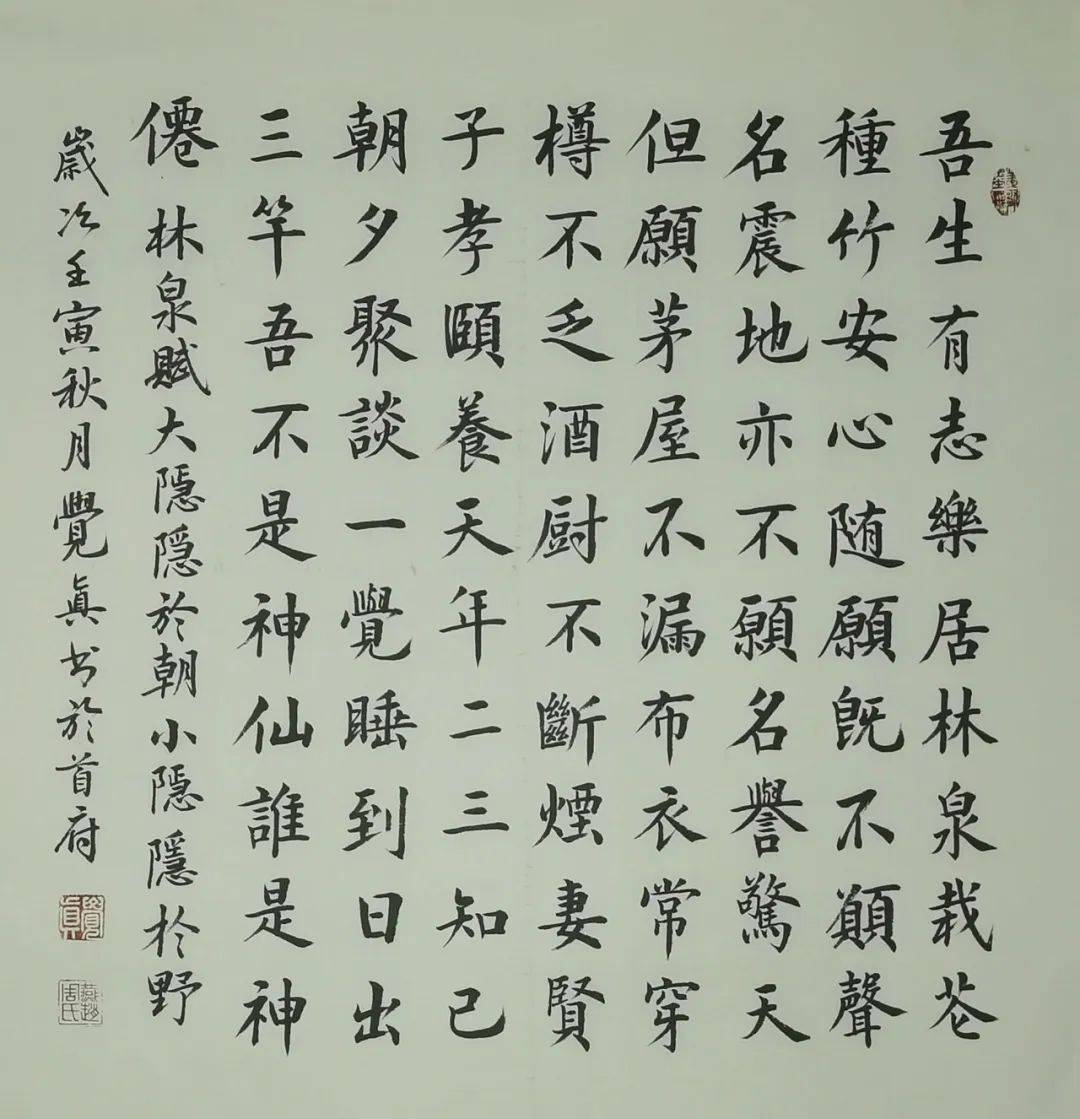 吾生有志樂居林泉栽花
種竹安心随願既不顛聲
名震地亦不願名譽驚天
但願茅屋不漏布衣常穿
樽不乏酒厨不斷煙妻賢
子孝頤養天年二三知己
朝夕聚談一覺睡到日出
三竿吾不是神仙誰是神
僊 林泉賦大隱隱於朝小隱隱於野
嵗次壬寅秋月覺真书於首府
覺真
燕趙周氏